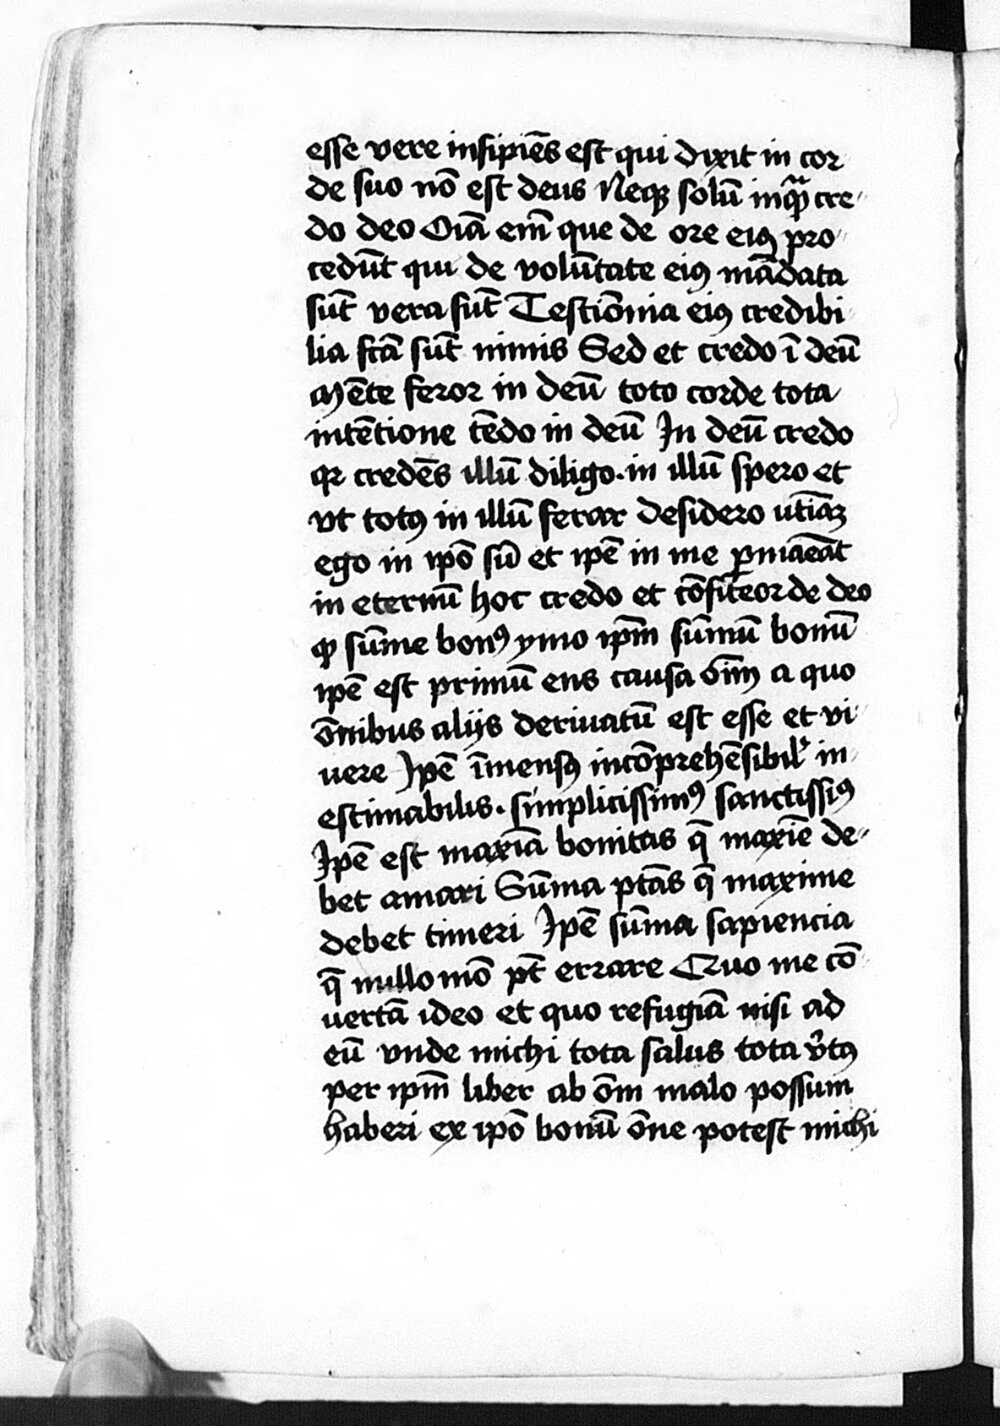 esse vere insipiēs est qui dixit in cor
de suo nō est deus Neqꝫ solū inquā cre
do deo Oīa em̄ que de ore eiꝰ pro
cedūt qui de volūtate eiꝰ mādata
sūt vera sūt Testiōnia eiꝰ credibi
lia sctā sūt nimis Sed et credo ī deū
Mēte feror in deū toto corde tota
intētione tēdo in deū In deū credo
qꝛ credēs illū diligo · in illū spero et
vt totꝰ in illū ferar desidero utīaꝫ
ego in ipō sū et ipē in me ꝑmāeāt
in eternū hoc credo et cōfiteor de deo
ꝙ sūme bonꝰ ymo ipm̄ sūmū bonū
ipē est primū ens causa oīm a quo
ōnibus aliis deriuatū est esse et vi
vere Ipē īmensꝰ incōprehēsibil' in
estimabilis · simplicissimꝰ sanctissiꝰ
Ipē est maxīa bonitas q̄ maxīe de
bet amari Sūma ptās q̄ maxime
debet timeri Ipē sūma sapiencia
q̄ nullo mō pt̄ errare Quo me cō
vertā ideo et quo refugiā nisi ad
eū vnde michi tota salus tota v̄tꝰ
per ipm̄ liber ab ōm malo possum
haberi ex ipō bonū ōne potest michi